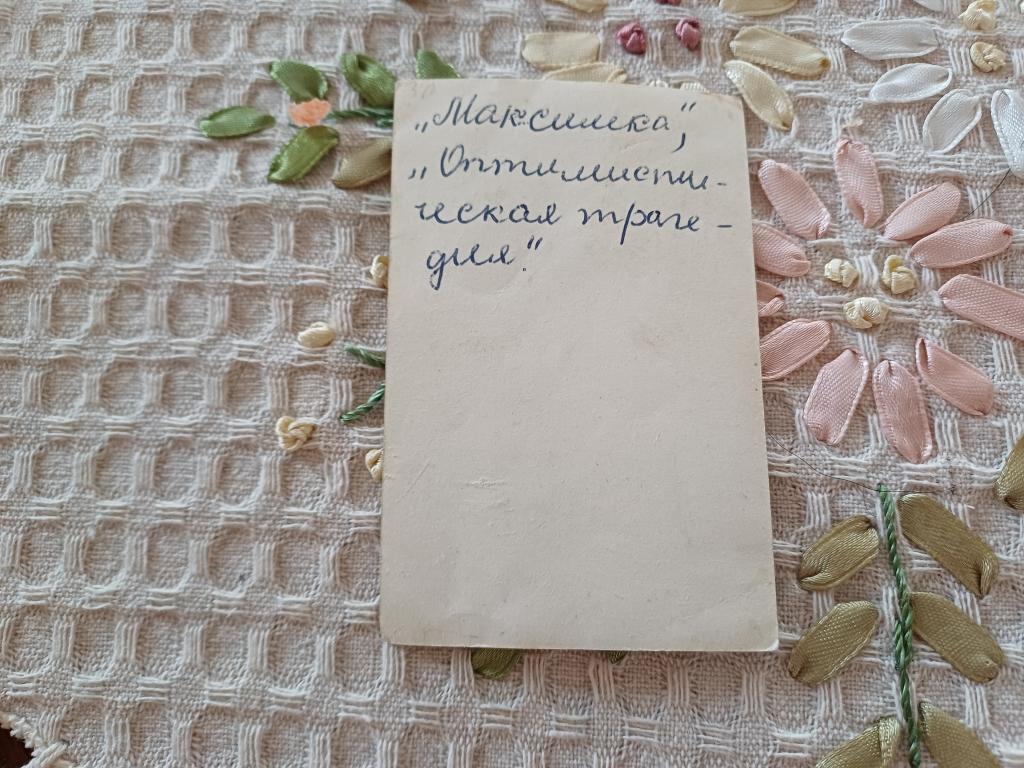 „Максимка“,
„Оптимисти-
ческая траге-
дия“.